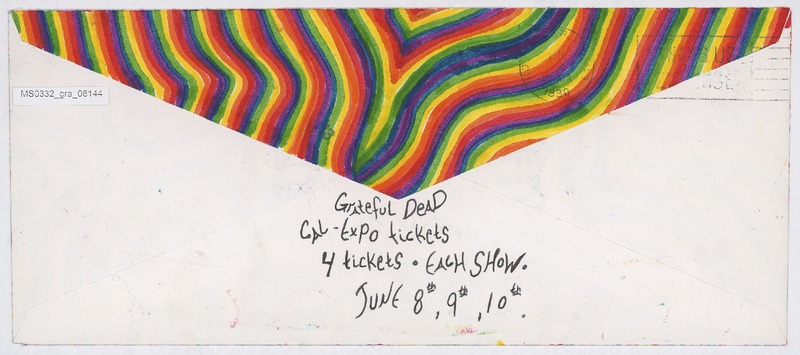 MS0332_gra_08144
1990
Grateful Dead
Cal-Expo tickets
4 tickets • EACH SHOW.
JUNE 8th, 9th, 10th.